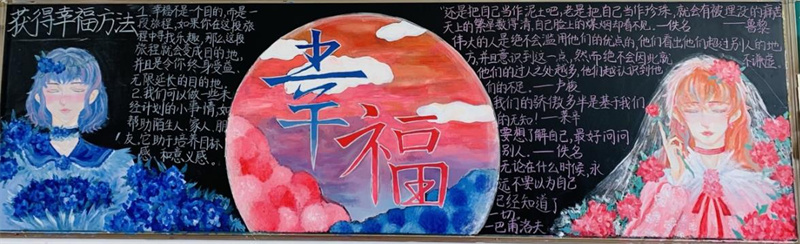 获得幸福方法
1.幸福不是个目的,而是一
段旅程,如果你在这段旅
程中寻找乐趣,那么这段
旅程就会变成目的地,
并且是令你终身受益,
无限延长的目的地,
2.我们可以做一些未
经计划的小事情,如
帮助陌生人、家人、朋
友,它助于培养目标
感和意义感。
幸福
还是把自己当作泥土吧,老是把自己当作珍珠,就会有被埋没的痛苦
天上的繁星数得清,自己脸上的煤烟却看不见。—佚名 —鲁藜
伟大的人是绝不会滥用他们的优点的,他们看出他们超过别人的地
方,并且意识到这一点,然而绝不会因此就不谦逊。
他们的过人之处越多,他们越认识到他
们的不足。—卢梭
我们的骄傲多半是基于我们
的无知!—莱辛
要想了解自己,最好问问
别人。—佚名
无论在什么时候,永
远不要以为自己
已经知道了
一切。
—巴甫洛夫